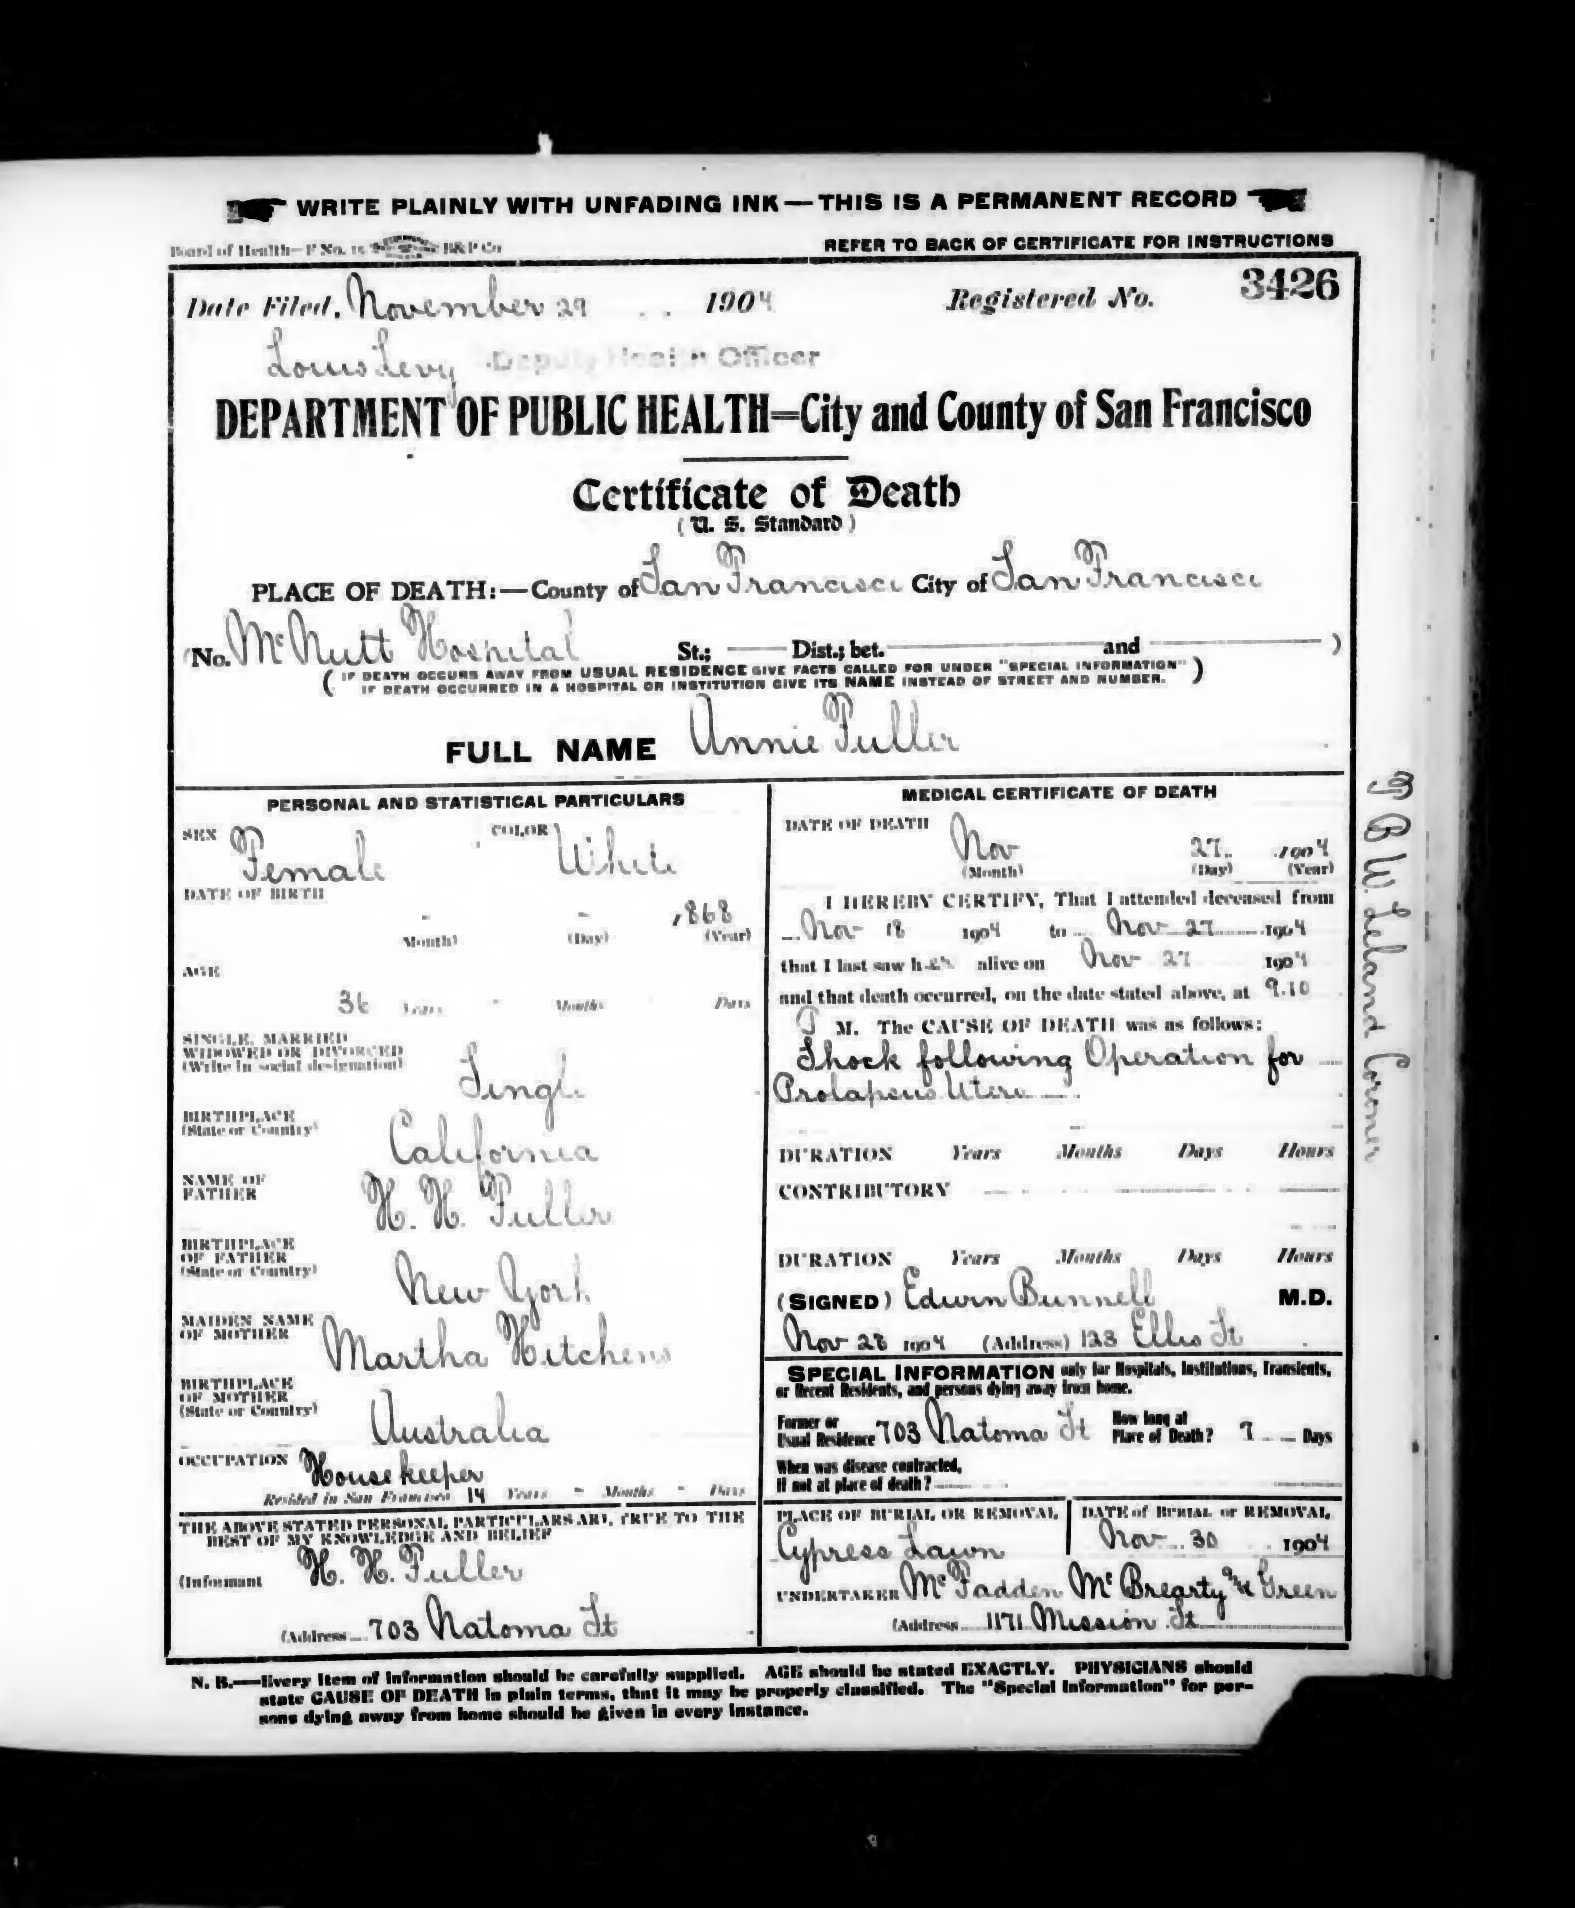 WRITE PLAINLY WITH UNFADING INK — THIS IS A PERMANENT RECORD
Board of Health—F No. 15 B&P Co
REFER TO BACK OF CERTIFICATE FOR INSTRUCTIONS
Date Filed, November 29 1904 Registered No. 3426
Louis Levy Deputy Health Officer
DEPARTMENT OF PUBLIC HEALTH=City and County of San Francisco
Certificate of Death
(U. S. Standard)
PLACE OF DEATH:—County of San Francisco City of San Francisco
(No. McNutt Hospital St.; Dist.; bet. and )
(IF DEATH OCCURS AWAY FROM USUAL RESIDENCE GIVE FACTS CALLED FOR UNDER "SPECIAL INFORMATION"
IF DEATH OCCURRED IN A HOSPITAL OR INSTITUTION GIVE ITS NAME INSTEAD OF STREET AND NUMBER.)
FULL NAME Annie Fuller
PERSONAL AND STATISTICAL PARTICULARS
SEX Female COLOR White
DATE OF BIRTH
- - 1868
(Month) (Day) (Year)
AGE
36 Years - Months Days
SINGLE, MARRIED
WIDOWED OR DIVORCED
(Write in social designation) Single
BIRTHPLACE
(State or Country) California
NAME OF
FATHER H. H. Fuller
BIRTHPLACE
OF FATHER
(State or Country) New York
MAIDEN NAME
OF MOTHER Martha Hitchens
BIRTHPLACE
OF MOTHER
(State or Country) Australia
OCCUPATION Housekeeper
Resided in San Francisco 14 Years - Months - Days
THE ABOVE STATED PERSONAL PARTICULARS ARE TRUE TO THE
BEST OF MY KNOWLEDGE AND BELIEF
(Informant H. H. Fuller
(Address 703 Natoma St
MEDICAL CERTIFICATE OF DEATH
DATE OF DEATH Nov 27 1904
(Month) (Day) (Year)
I HEREBY CERTIFY, That I attended deceased from
Nov 18 1904 to Nov 27 1904
that I last saw her alive on Nov 27 1904
and that death occurred, on the date stated above, at 9.10
P M. The CAUSE OF DEATH was as follows:
Shock following Operation for
Prolapsus Uteri
DURATION Years Months Days Hours
CONTRIBUTORY
DURATION Years Months Days Hours
(SIGNED) Edwin Bunnell M.D.
Nov 28 1904 (Address) 123 Ellis St
SPECIAL INFORMATION only for Hospitals, Institutions, Transients,
or Recent Residents, and persons dying away from home.
Former or
Usual Residence 703 Natoma St How long at
Place of Death? 9 Days
When was disease contracted,
If not at place of death?
PLACE OF BURIAL OR REMOVAL DATE of BURIAL or REMOVAL
Cypress Lawn Nov 30 1904
UNDERTAKER McFadden McBrearty & Green
(Address 1171 Mission St
B W. Leland Coroner
N. B.—Every item of information should be carefully supplied. AGE should be stated EXACTLY. PHYSICIANS should
state CAUSE OF DEATH in plain terms, that it may be properly classified. The "Special Information" for per-
sons dying away from home should be given in every instance.